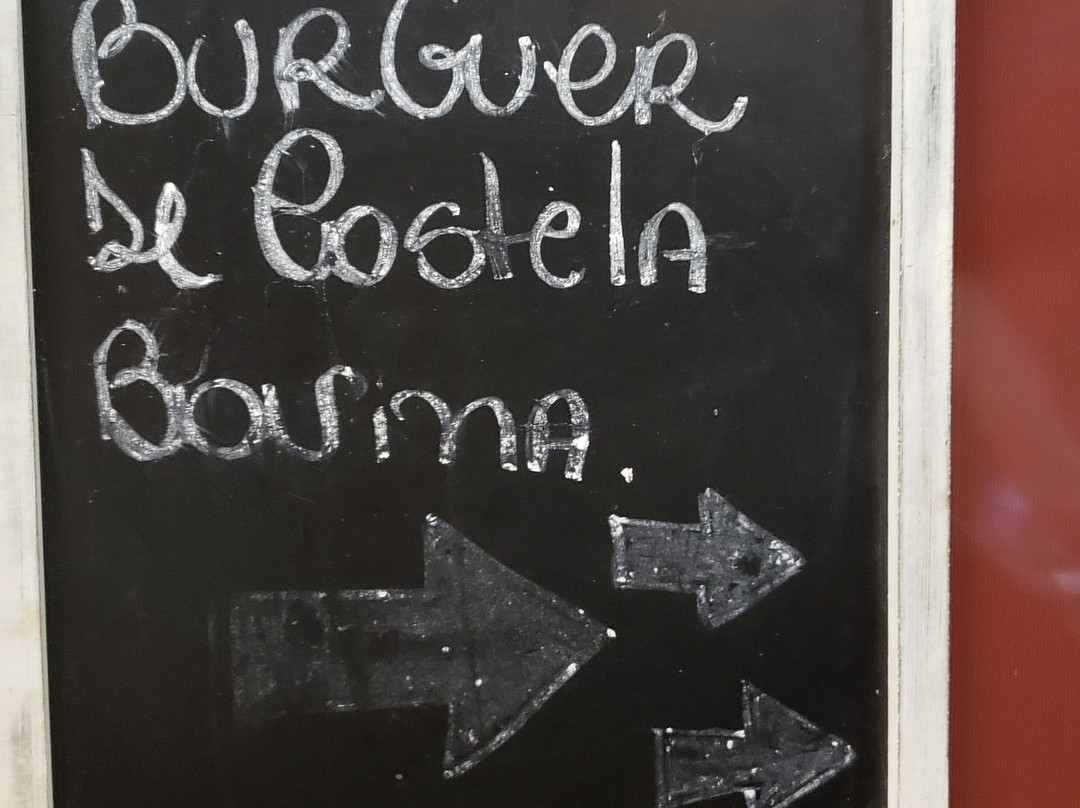 BURGUER
de Costela
Bovina.